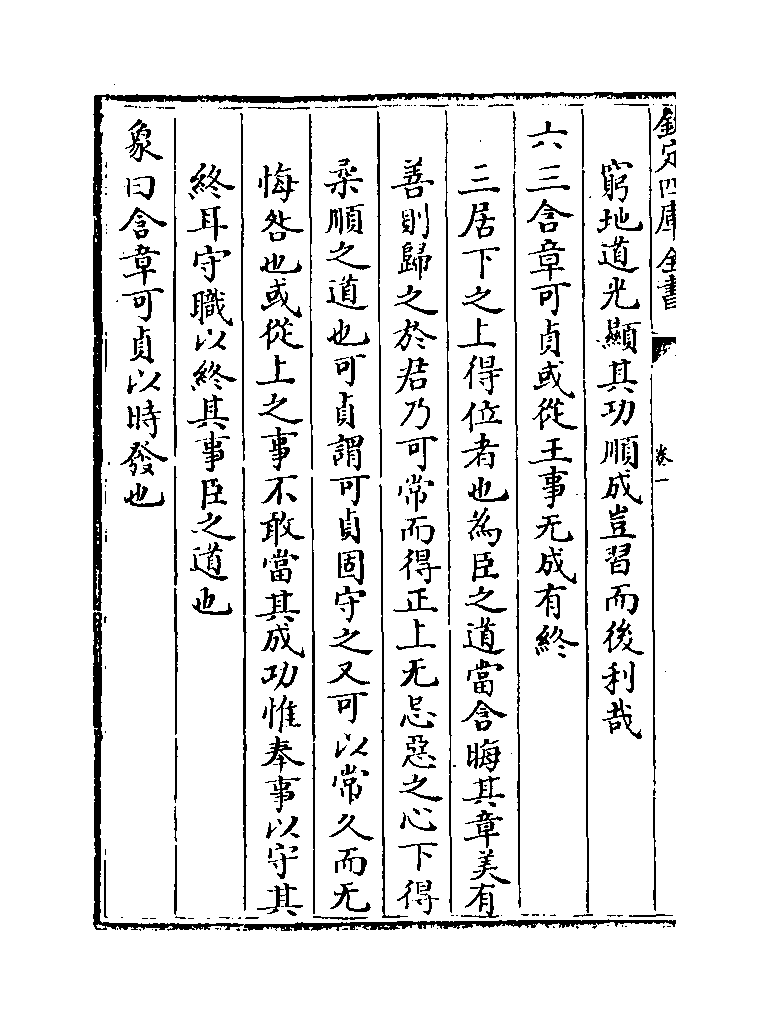 欽定四庫全書
卷一
窮地道光顯其功順成豈習而後利哉
六三含章可貞或從王事无成有終
三居下之上得位者也為臣之道當含晦其章美有
善則歸之於君乃可常而得正上无忌惡之心下得
柔順之道也可貞謂可貞固守之又可以常久而无
悔咎也或從上之事不敢當其成功惟奉事以守其
終耳守職以終其事臣之道也
象曰含章可貞以時發也